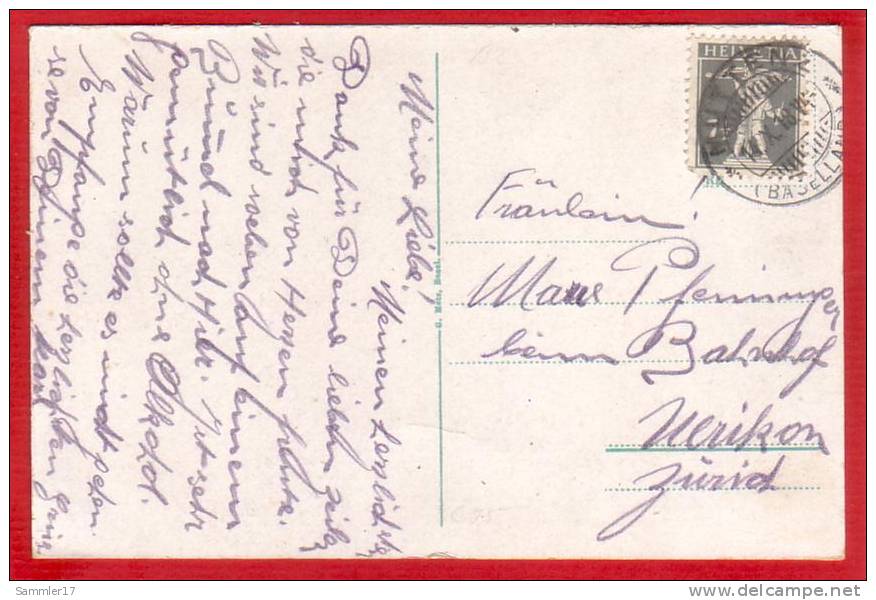 Meine Liebe!
Meinen herzlichsten
Dank für Deine lieben Zeilen
die mich von Herzen freute.
Wir sind soeben auf einem
Bümmel nach hier. Ist sehr
gemütlich ohne Alkohol.
Warum sollte es nicht gehen.
Empfange die herzlichsten Grüs
se von Deinem Karl
G. Metz, Basel.
HELVETIA
(BASELLAND)
Fräulein!
Marie Pfenninger
beim Bahnhof
Uerikon
Zürich
Sammler17
delcampe.net